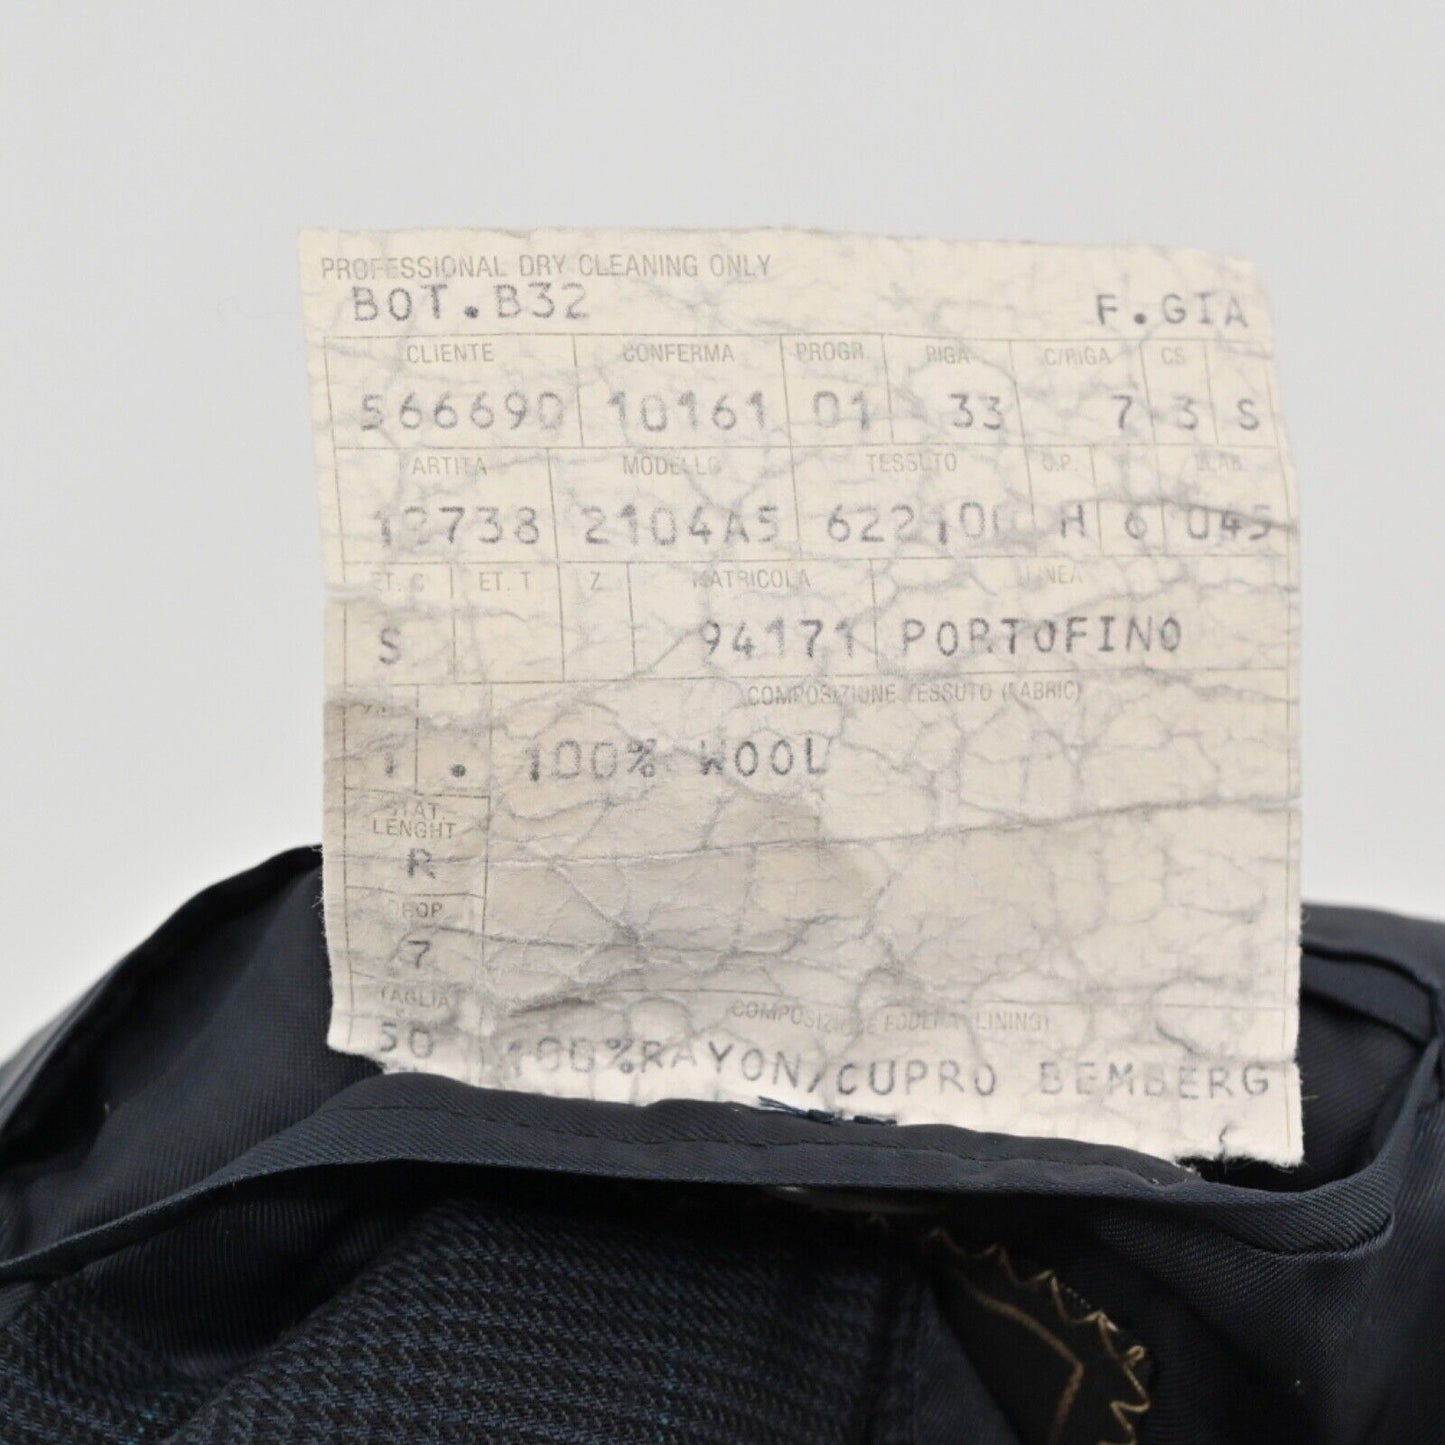 PROFESSIONAL DRY CLEANING ONLY
BOT.B32 F.GIA
CLIENTE CONFERMA PROGR. RIGA C/RIGA CS
566690 10161 01 33 7 3 S
ARTITA MODELLO TESSUTO O.P.
2104A5 H 6 045
ET. C ET. T Z MATRICOLA LINEA
S 94171 PORTOFINO
COMPOSIZIONE TESSUTO (FABRIC)
1 . 100% WOOL
STAT.
LENGHT
R
DROP
7
TAGLIA COMPOSIZIONE FODERA (LINING)
50 100%RAYON/CUPRO BEMBERG